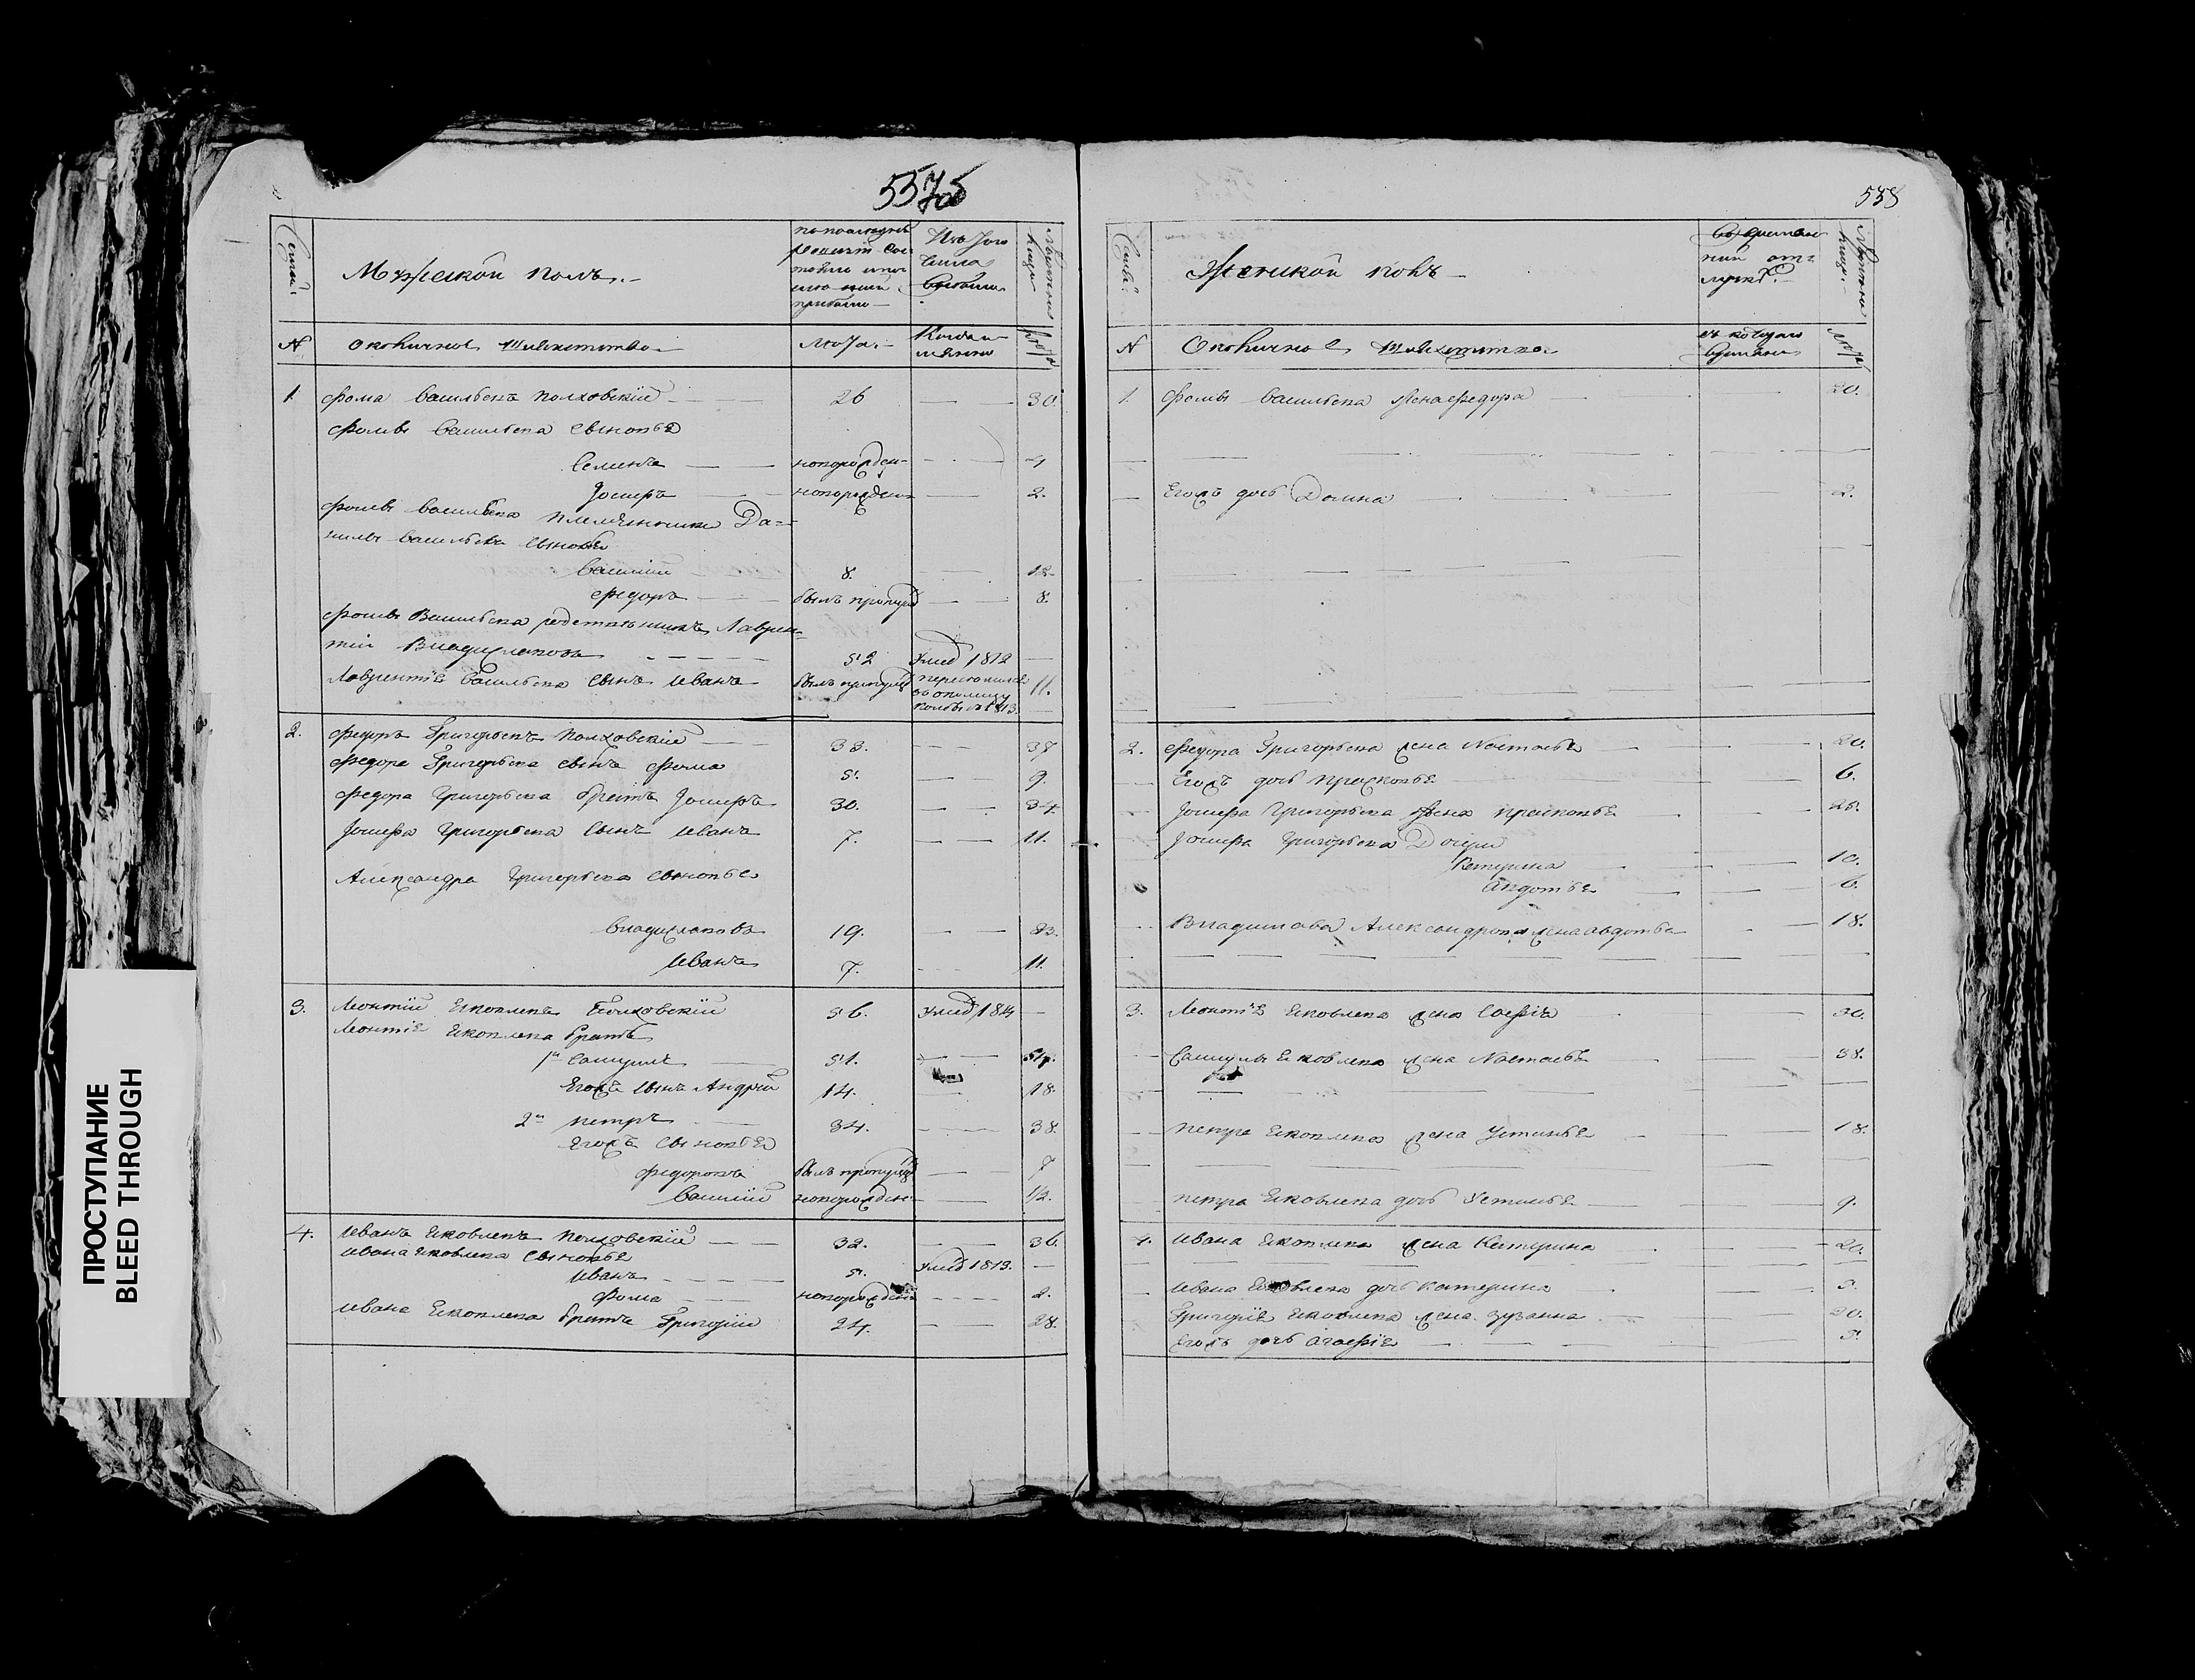 557об
Семьи
Мужеской полъ.
по последней
ревизіи сос-
тояло и по-
сле ныне
прибыло
Изъ того
числа
выбыло
Ныне на
лицо
№
Околичное шляхетство
лета.
Когда
именно
лета
1. Фома Васильевъ Полховскій 26 30.
Фомы Васильева сыновья
Семенъ новорожден- 4
Іосифъ новорожден- 2.
Фомы Васильева племенники Да-
нилы Васильева сыновья
Василій 8. 12.
Федоръ былъ пропущ 8.
Фомы Васильева родственникъ Лаврен-
тій Владиславовъ 52 умер 1812
Лаврентія Васильева сынъ Иванъ былъ пропущ 11.
2. Федоръ Григорьевъ Полховскій 33. 37
Федора Григорьева сынъ Фома 5. 9.
Федора Григорьева братъ Іосифъ 30. 34.
Іосифа Григорьева сынъ Иванъ 7. 11.
Александра Григорьева сыновья
Владиславовъ 19. 23.
Иванъ 7. 11.
3. Леонтій Яковлевъ Полховскій 56. умер 1814
Леонтія Яковлева братья
1й Самуилъ 51.
Егожъ сынъ Андрей 14. 18.
2й Петръ 34. 38.
Егожъ сыновья
Федоровъ былъ пропущ 7
Василій новорожден- 1/2.
4. Иванъ Яковлевъ Полховскій 32. 36.
Ивана Яковлева сыновья
Иванъ 5. умер 1813.
Фома новорожден 2.
Ивана Яковлева братъ Григорій 24. 28.
558
Семьи
Женской полъ
Во времен-
ной от-
лучке.
Ныне на
лицо
№
Околичное шляхетство
съ котораго
времени
лета
1. Фомы Васильева жена Федора 20.
Егожъ дочь Домна 2.
2. Федора Григорьева жена Настасья 20.
Егожъ дочь Просковья 6.
Іосифа Григорьева жена Просковья 25.
Іосифа Григорьева дочери
Катерина 10.
Авдотья 6.
Владислава Александрова жена Авдотья 18.
3. Леонтія Яковлева жена Софія
Самуилы Яковлева жена Настасья 38.
Петра Яковлева жена Устинья 18.
Петра Яковлева дочь Устинья 9.
4. Ивана Яковлева жена Катерина 20.
Ивана Яковлева дочь Катерина 3.
Григорія Яковлева жена Зузанна 20.
Егожъ дочь Агафія
ПРОСТУПАНИЕ
BLEED THROUGH